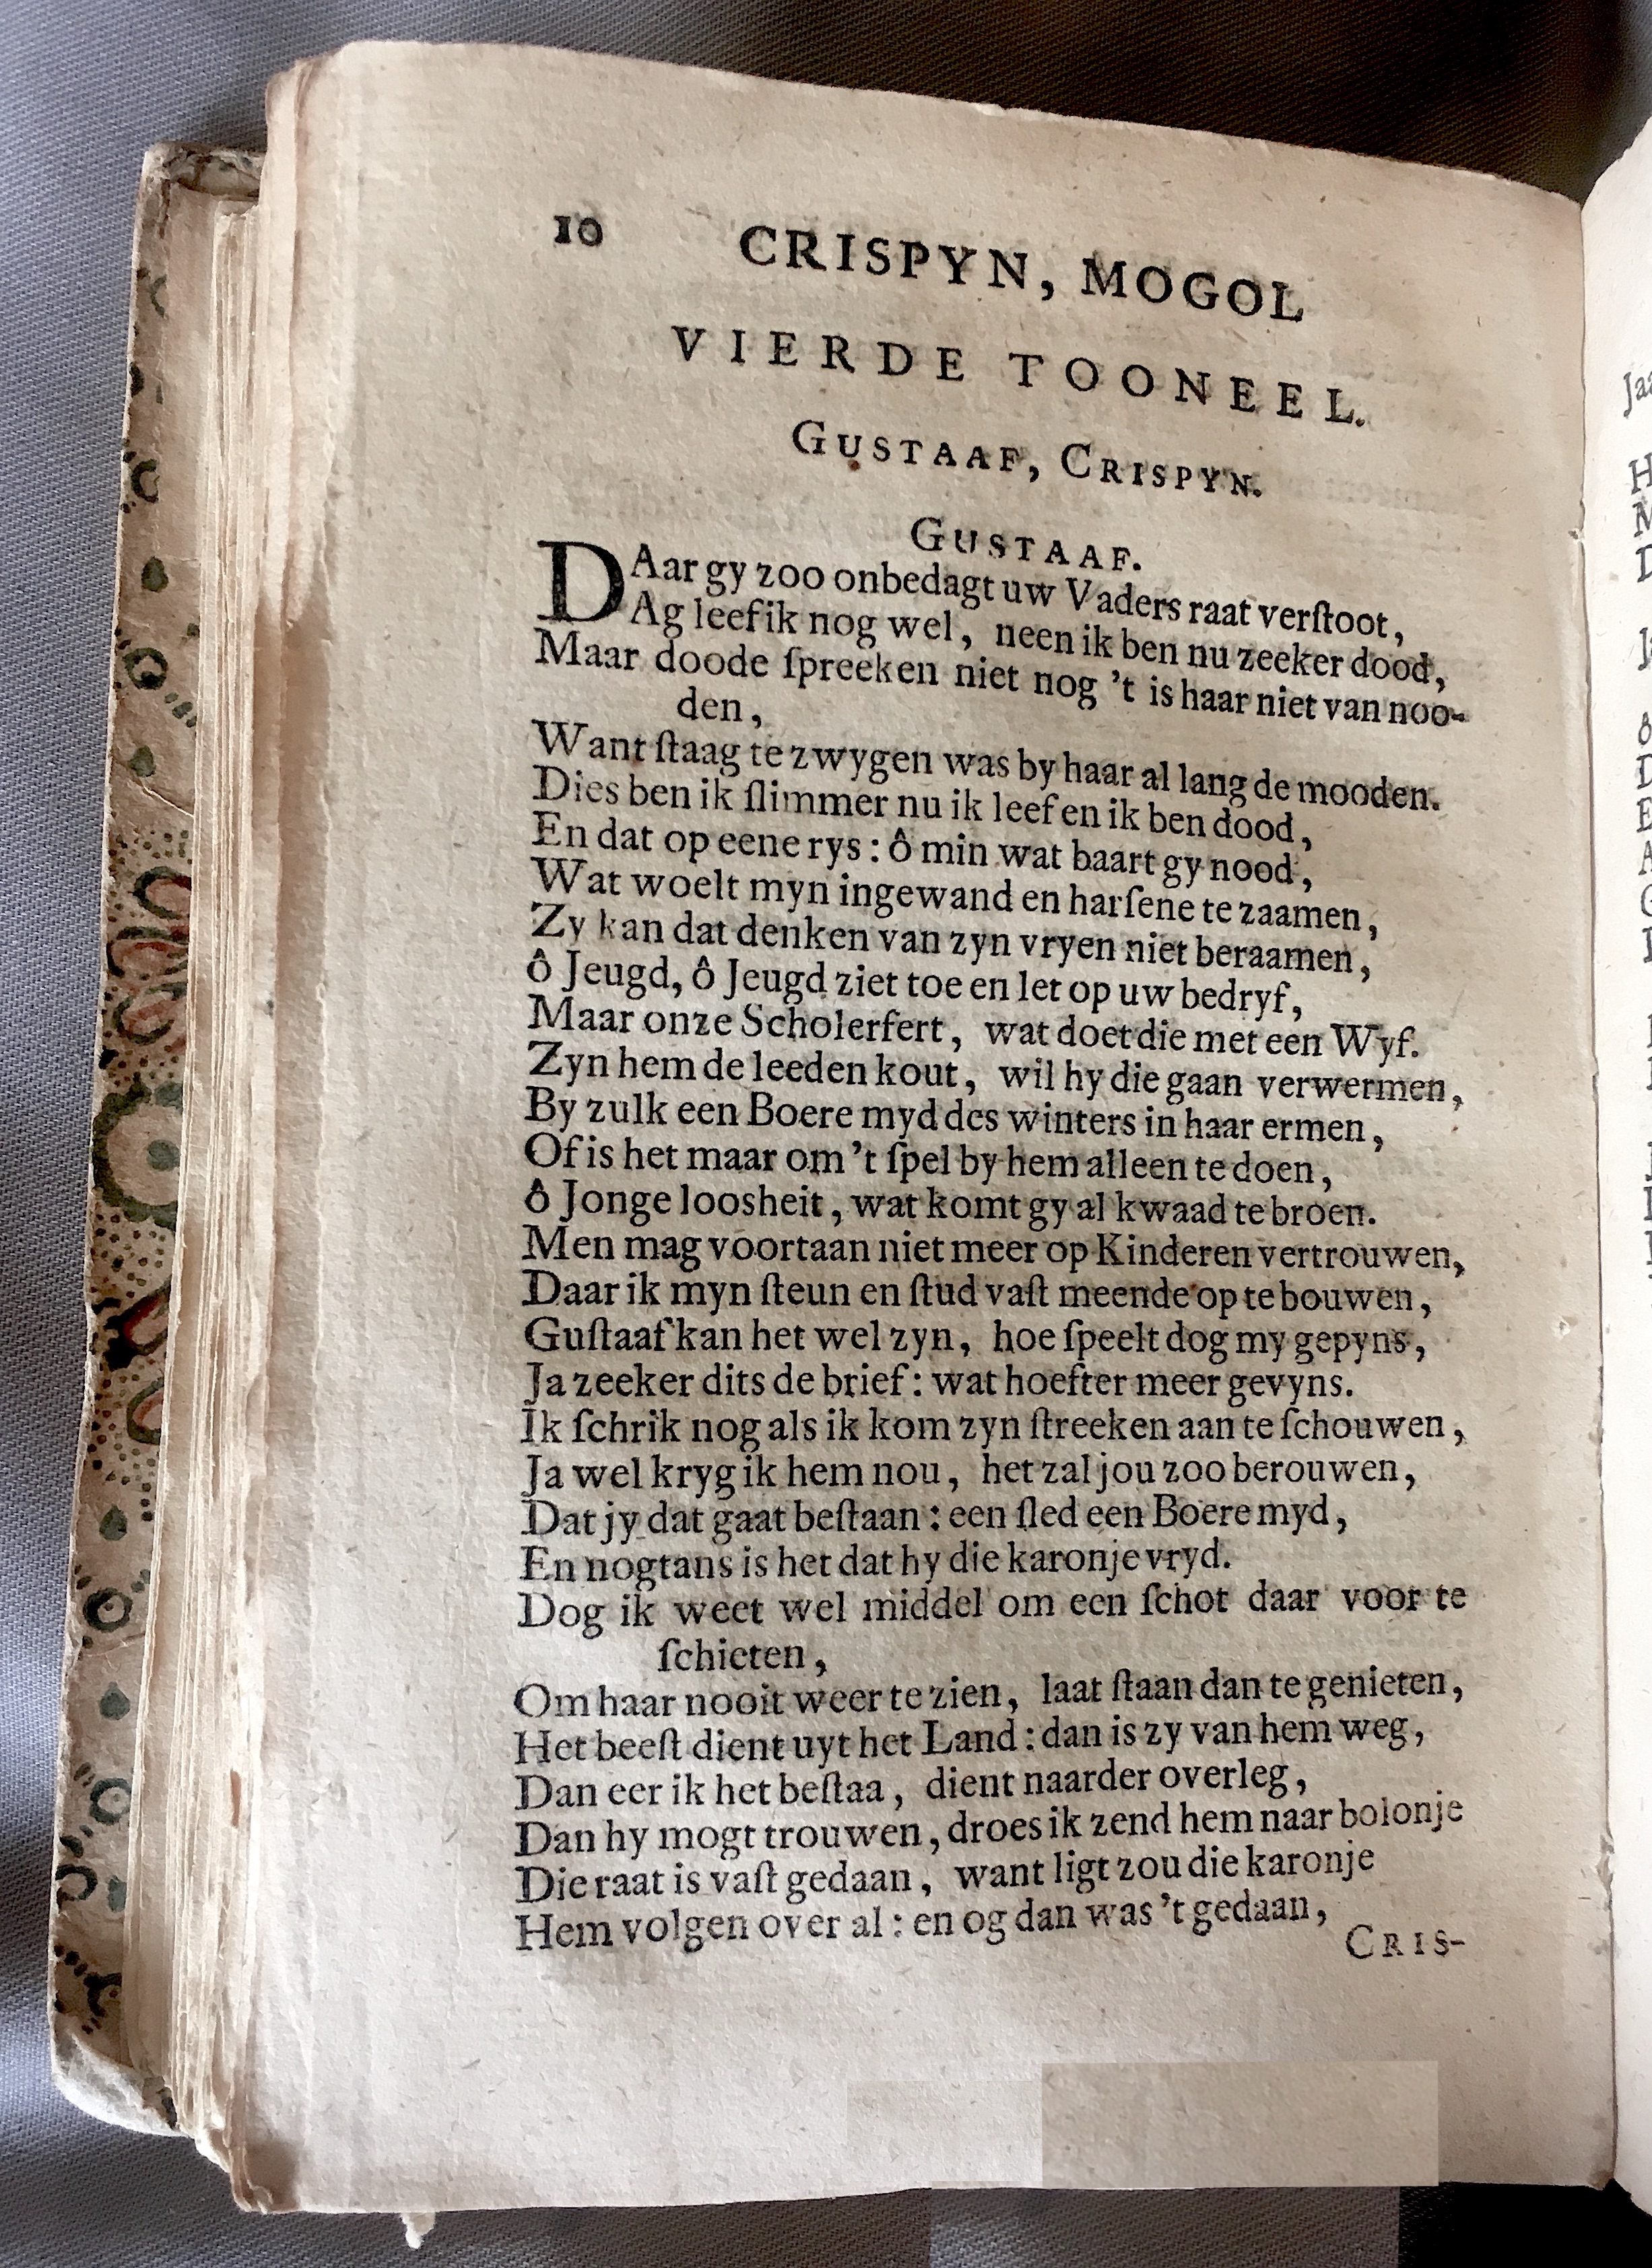 10 CRISPYN, MOGOL
VIERDE TOONEEL.
GUSTAAF, CRISPYN.
GUSTAAF.
DAar gy zoo onbedagt uw Vaders raat verſtoot,
Ag leef ik nog wel, neen ik ben nu zeeker dood,
Maar doode ſpreeken niet nog 't is haar niet van noo-
den,
Want ſtaag te zwygen was by haar al lang de mooden.
Dies ben ik ſlimmer nu ik leef en ik ben dood,
En dat op eene rys: ô min wat baart gy nood,
Wat woelt myn ingewand en harſene te zaamen,
Zy kan dat denken van zyn vryen niet beraamen,
ô Jeugd, ô Jeugd ziet toe en let op uw bedryf,
Maar onze Scholerfert, wat doet die met een Wyf.
Zyn hem de leeden kout, wil hy die gaan verwermen,
By zulk een Boere myd des winters in haar ermen,
Of is het maar om 't ſpel by hem alleen te doen,
ô Jonge loosheit, wat komt gy al kwaad te broen.
Men mag voortaan niet meer op Kinderen vertrouwen,
Daar ik myn ſteun en ſtud vaſt meende op te bouwen,
Guſtaaf kan het wel zyn, hoe ſpeelt dog my gepyns,
Ja zeeker dits de brief: wat hoefter meer gevyns.
Ik ſchrik nog als ik kom zyn ſtreeken aan te ſchouwen,
Ja wel kryg ik hem nou, het zal jou zoo berouwen,
Dat jy dat gaat beſtaan: een ſled een Boere myd,
En nogtans is het dat hy die karonje vryd.
Dog ik weet wel middel om een ſchot daar voor te
ſchieten,
Om haar nooit weer te zien, laat ſtaan dan te genieten,
Het beeſt dient uyt het Land: dan is zy van hem weg,
Dan eer ik het beſtaa, dient naarder overleg,
Dan hy mogt trouwen, droes ik zend hem naar bolonje
Die raat is vaſt gedaan, want ligt zou die karonje
Hem volgen over al: en og dan was 't gedaan,
CRIS-